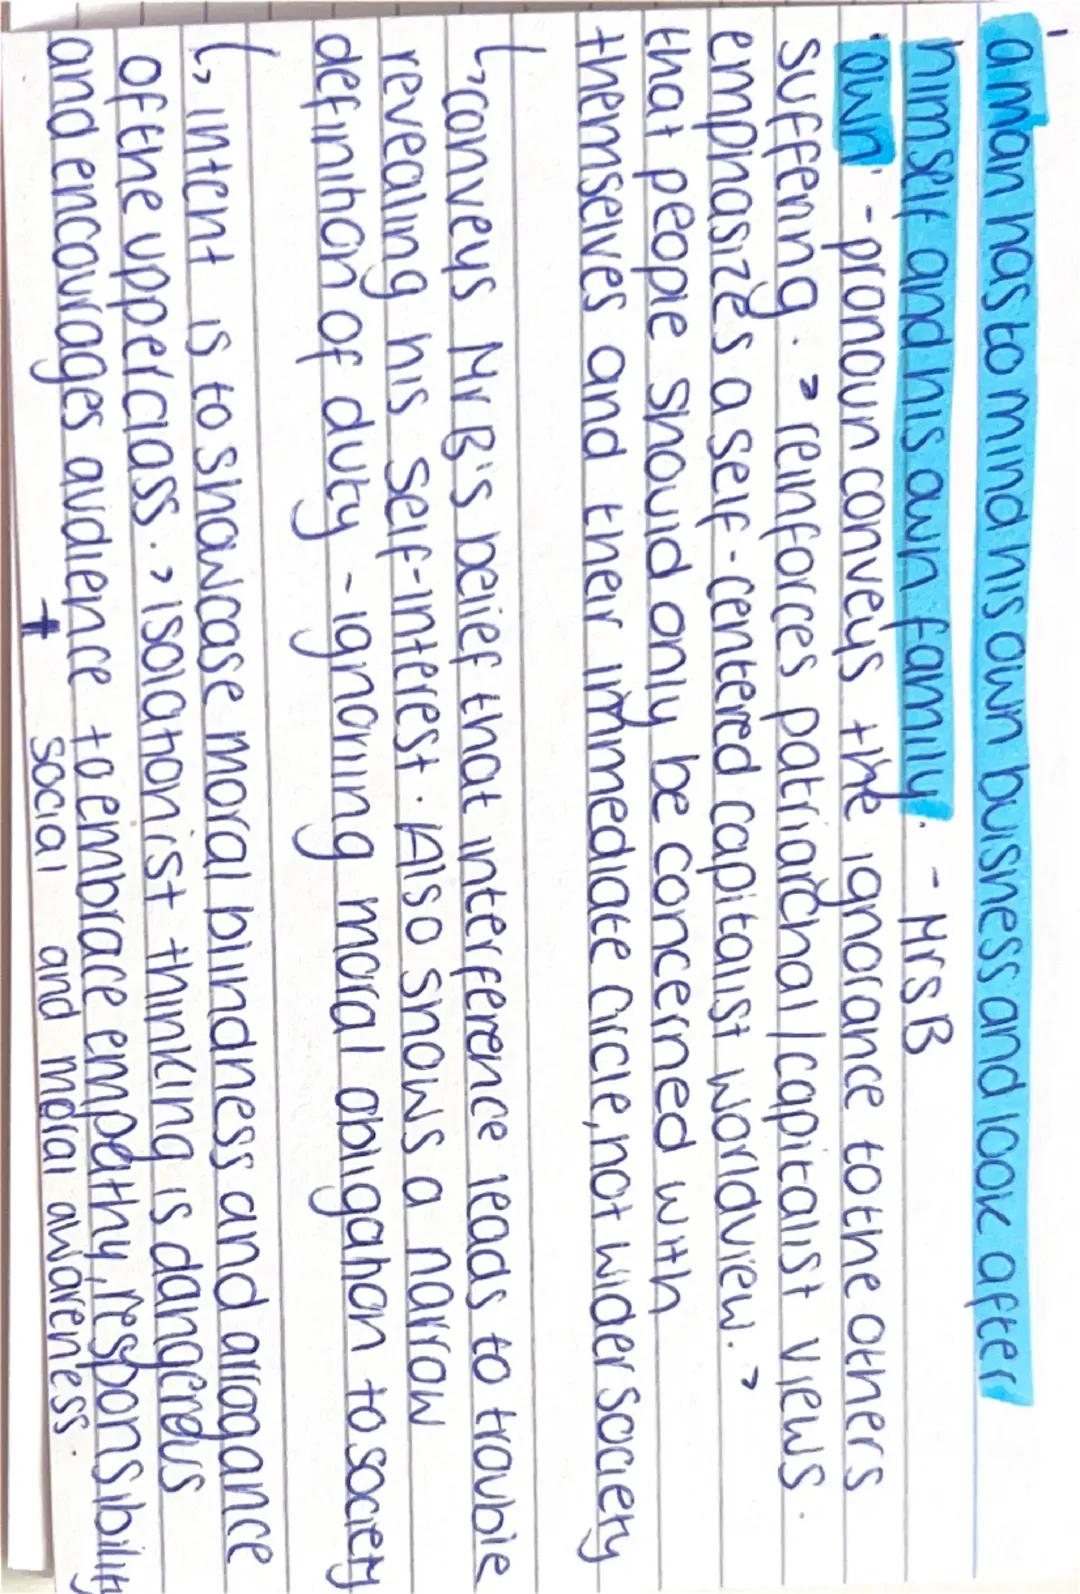 'a man has to mind his own buisness and look after
himself and his own family'. - Mr B
'own' - pronoun conveys the ignorance to the others
suffering. > reinforces patriarchal/capitalist views.
emphasizes a self-centered capitalist worldview. >
that people should only be concerned with
themselves and their immediate circle, not wider society
↳ conveys Mr B's belief that interference leads to trouble
revealing his self-interest. Also shows a narrow
definition of duty - ignoring moral obligation to society
↳ intent is to showcase moral blindness and arrogance
of the upperclass. > isolationist thinking is dangerous
and encourages audience to embrace empathy, responsibility
+ social and moral awareness.